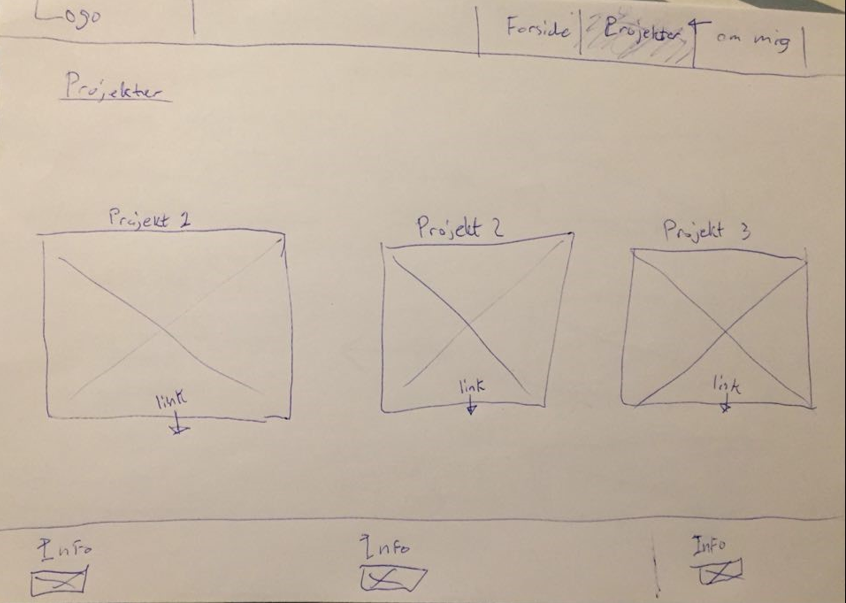 Logo
Forside Projekter om mig
Projekter
Projekt 1 Projekt 2 Projekt 3
link link link
Info Info Info